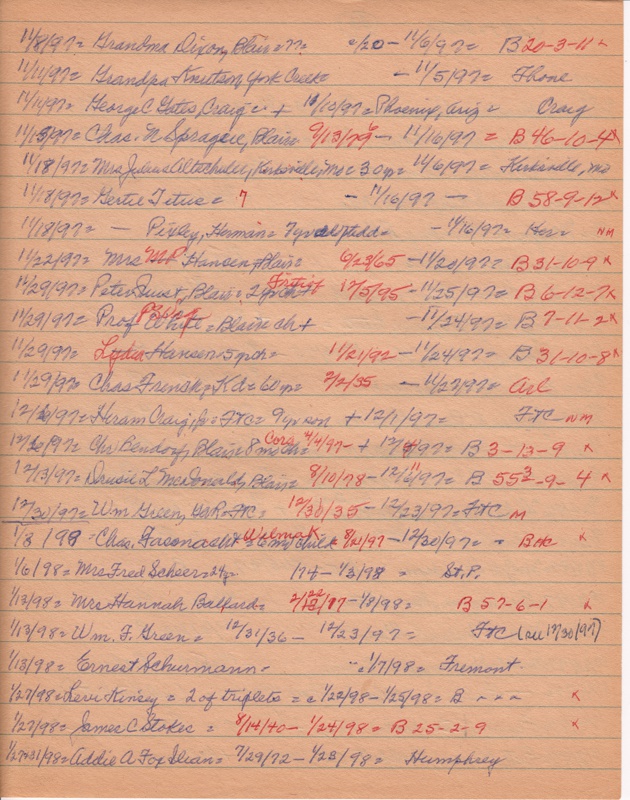 11/8/97 = Grandma Dixon, Blair = 77 = c/20 - 11/6/97 = B 20-3-11 x
11/11/97 = Grandpa Knutson, York Creek = - 11/5/97 = Fhone
11/14/97 = George C Gates, Craig = + 10/10/97 = Phoenix, Ariz = Craig
11/15/97 = Chas. N Sprague, Blair 9/13/76 - 11/16/97 = B 46-10-4 x
11/18/97 = Mrs Julius Altschuler, Kirksville, Mo = 30 yr = 11/6/97 = Kirksville, Mo
11/18/97 = Gertie Titus = 7 - 11/16/97 - B 58-9-12 x
11/18/97 = - Pixley, Herman = 7 yr old - 11/16/97 - Her = NM
11/22/97 = Mrs MP Hansen, Blair = 6/23/65 - 11/20/97 = B 31-10-9 x
11/29/97 = Peter Juist, Blair = 2 yr ch + 12/5/95 - 11/25/97 = B 6-12-7 x
11/29/97 = Prof White = Blair ch + - 11/24/97 = B 7-11-2 x
11/29/97 = Lydia Hansen = 5 y ch = 11/21/92 - 11/24/97 = B 31-10-8 x
11/29/97 = Chas French = Kd = 60 yr = 2/2/35 - 11/27/97 = Arl
12/6/97 = Hiram Craig, Jr = FtC = 9 yr son + 12/1/97 = FtC NM
12/6/97 = Chr Bendorf, Blair 8 mo ch = Cora 4/4/97 - + 12/4/97 = B 3-13-9 x
12/13/97 = Drusil L McDonald, Blair = 8/10/78 - 12/11/97 = B 55 3/2-9-4 x
12/30/97 = Wm Green, GAR = FtC = 12/30/35 - 12/23/97 = FtC M
1/3/98 = Chas. 6 mo child Wilma K = 8/21/97 - 12/30/97 = x
1/6/98 = Mrs Fred Scheer = 24 yr 1/74 - 1/3/98 = St. P.
1/13/98 = Mrs Hannah Balfard = 2/22/17 - 1/8/98 = B 57-6-1 x
1/13/98 = Wm. F. Green = 12/31/36 - 12/23/97 = FtC (see 12/30/97)
1/13/98 = Ernest Schurmann - c 1/7/98 = Fremont.
1/27/98 = Levi Kinsey = 2 of triplets = c 1/22/98 - 1/25/98 = B - - - x
1/27/98 = James C Stokes = 8/14/40 - 1/24/98 = B 25-2-9 x
1/27+31/98 = Addie A Fox Ilian = 7/29/72 - 1/23/98 = Humphrey